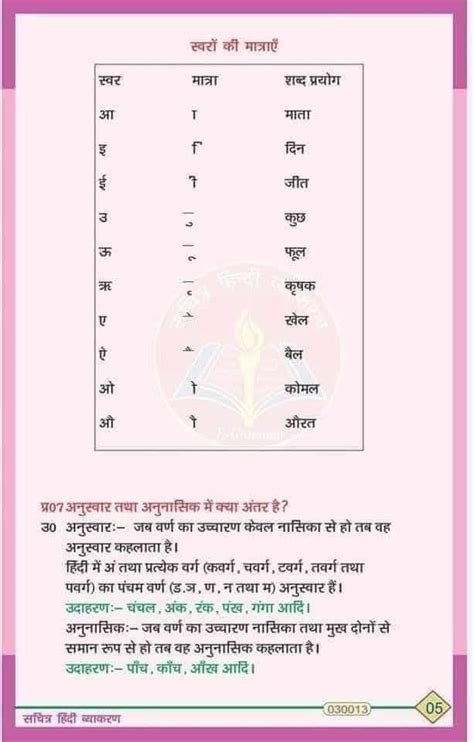 स्वरों की मात्राएँ
स्वर मात्रा शब्द प्रयोग
आ ा माता
इ ि दिन
ई ी जीत
उ ु कुछ
ऊ ू फूल
ऋ ृ कृषक
ए े खेल
ऐ ै बैल
ओ ो कोमल
औ ौ औरत
प्र07 अनुस्वार तथा अनुनासिक में क्या अंतर है?
उ0 अनुस्वारः– जब वर्ण का उच्चारण केवल नासिका से हो तब वह
अनुस्वार कहलाता है।
हिंदी में अं तथा प्रत्येक वर्ग (कवर्ग, चवर्ग, टवर्ग, तवर्ग तथा
पवर्ग) का पंचम वर्ण (ड.ञ, ण, न तथा म) अनुस्वार हैं।
उदाहरणः– चंचल, अंक, रंक, पंख, गंगा आदि।
अनुनासिकः– जब वर्ण का उच्चारण नासिका तथा मुख दोनों से
समान रूप से हो तब वह अनुनासिक कहलाता है।
उदाहरणः– पाँच, काँच, आँख आदि।
सचित्र हिंदी व्याकरण
030013
05